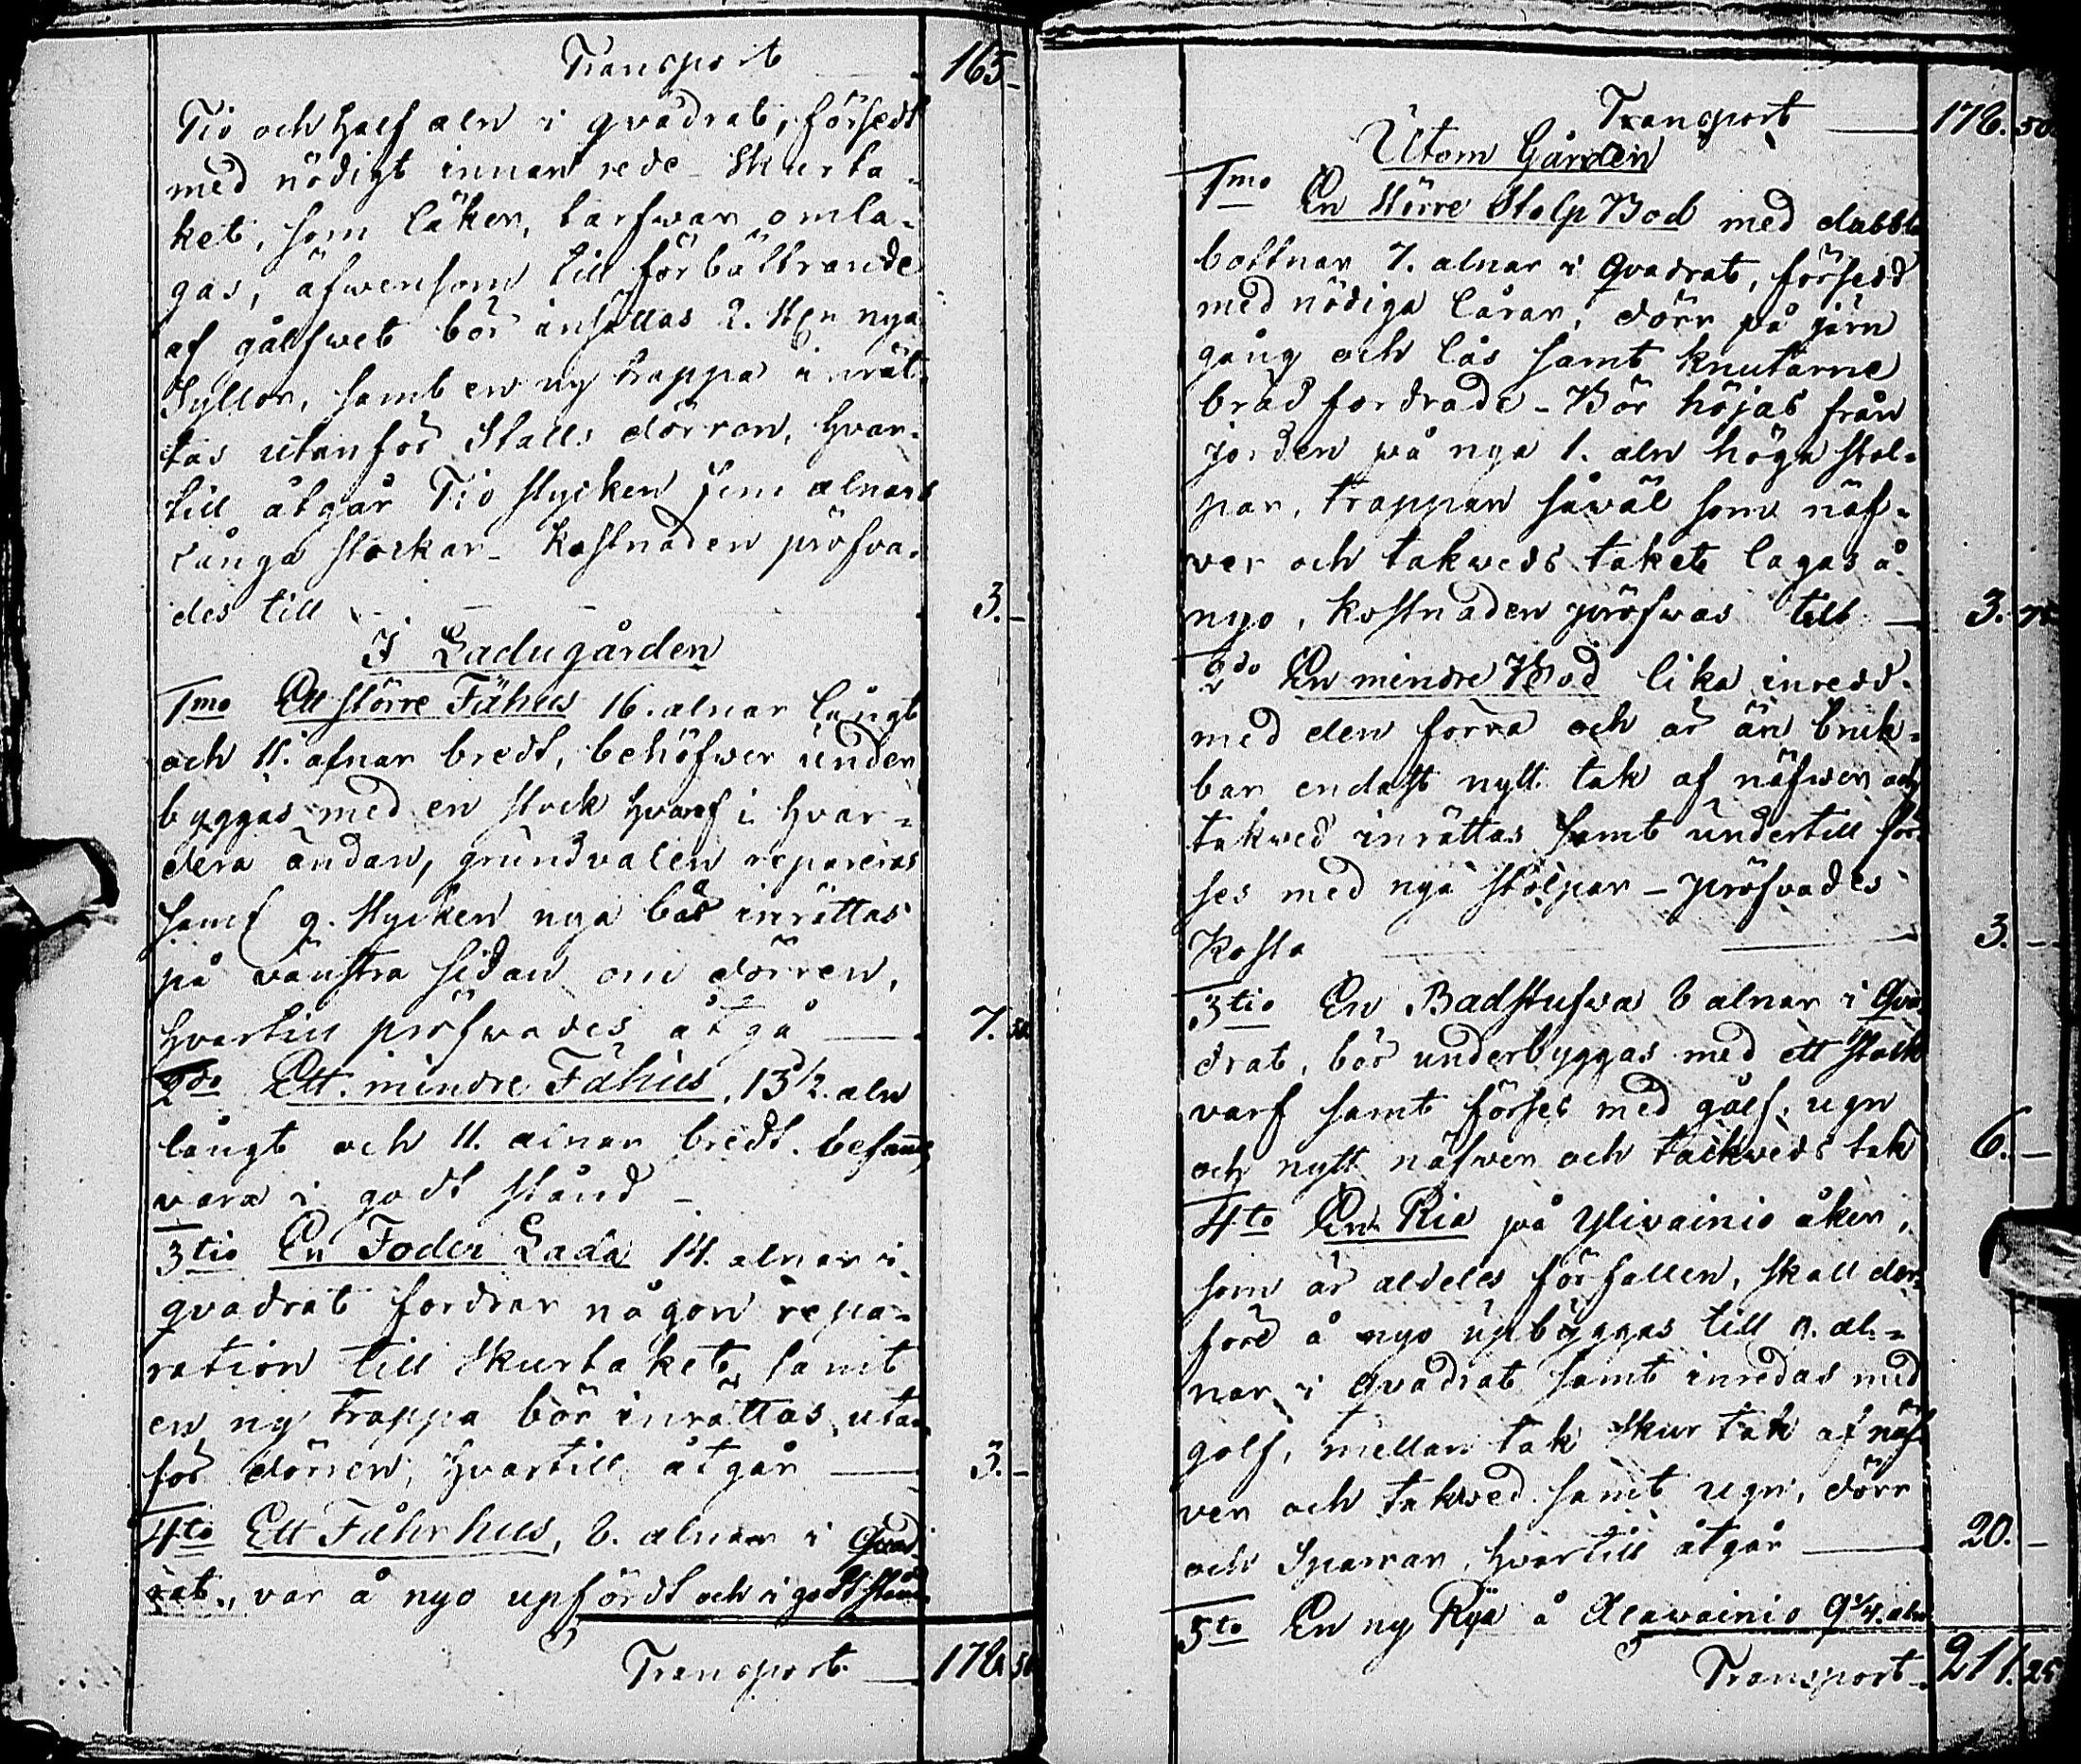 Transport 165 -
Tio och half aln i qvadrat, försedt
med nödigt innanrede - Skurta-
ket, som läker, tarfwar omla-
gas, äfwensom till förbättrande
af gålfwet bör insättas 2. St:n nya
Syllor, samt en ny trappa inrät-
tas utanför Stalls dörren, hvar-
till åtgår Tio stycken fem alnars
långa stockar - Kostnaden pröfva-
des till - - - 3. -
I Ladugården
1mo Ett större Fähus 16. alnar långt
och 11. alnar bredt, behöfwer under
byggas med en stock hvarf i hvar-
dera ändan, grundvalen repareras
samt 9. stycken nya bås inrättas
på vänstra sidan om dörren,
hvartill pröfwades åtgå — 7. 50
2do Ett mindre Fähus, 13 1/2. aln
långt och 11. alnar bredt. befanns
vara i godt stånd -
3tio En Foder Lada 14. alnar i
qvadrat fordrar någon repa-
ration till skurtaket, samt
en ny trappa bör inrättas utan-
för dörren, hvartill åtgår — 3. -
4to Ett Fåhrhus, 8. alnar i Qvad-
rat, var å nyo upfördt och i godt stånd
Transport — 178. 50
Transport — 178. 50
Utom Gården
1mo En Större Stolp Bod med dubbla
bottnar 7. alnar i Qvadrat, försedd
med nödiga lårar, dörr på järn
gång och lås samt knutarne
bräd fordrade - Bör höjas från
jorden på nya 1. aln höga stol-
par, trappan såväl som näf-
ver och takweds taket lagas å
nyo, kostnaden pröfwas till — 3. 75
2do En mindre Bod lika inredd
med den förra och är än bruk-
bar endast nytt tak af näfwer och
takwed inrättas samt undertill för-
ses med nya stolpar - pröfvades
kosta — 3. -
3tio En Badstufwa 8 alnar i Qva-
drat, bör underbyggas med ett stock
varf samt förses med gålf, ugn
och nytt näfwer och takweds tak 6. -
4to En Ria på Ylivainio åker,
som är aldeles förfallen, skall der-
före å nyo upbyggas till 9. al-
nar i qvadrat samt inredas med
golf, mellan tak skur tak af näf-
ver och takwed samt ugn, dörr
och Sparrar, hvartill åtgår — 20. -
5to En ny Rya å Alavainio 9 3/4. aln
Transport 211. 25